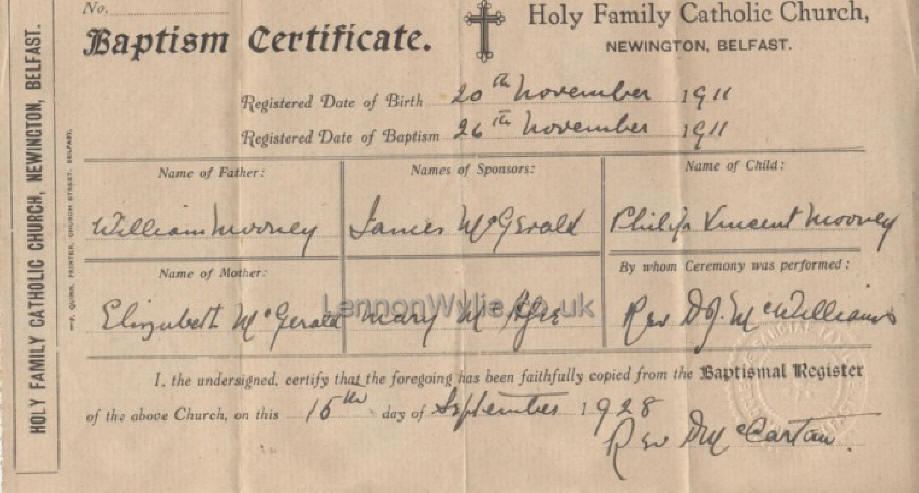 No.
Baptism Certificate.
Holy Family Catholic Church,
NEWINGTON, BELFAST.
Registered Date of Birth 20th November 1911
Registered Date of Baptism 26th November 1911
Name of Father:
William Mooney
Names of Sponsors:
James McGerald
Name of Child:
Philip Vincent Mooney
Name of Mother:
Elizabeth McGerald
Mary
By whom Ceremony was performed:
Rev D.J. McWilliams
LennonWylie.co.uk
I, the undersigned, certify that the foregoing has been faithfully copied from the Baptismal Register
of the above Church, on this 15th day of September 1928
Rev McCartan
HOLY FAMILY CATHOLIC CHURCH, NEWINGTON, BELFAST.
P. QUINN, PRINTER, CHURCH STREET, BELFAST.